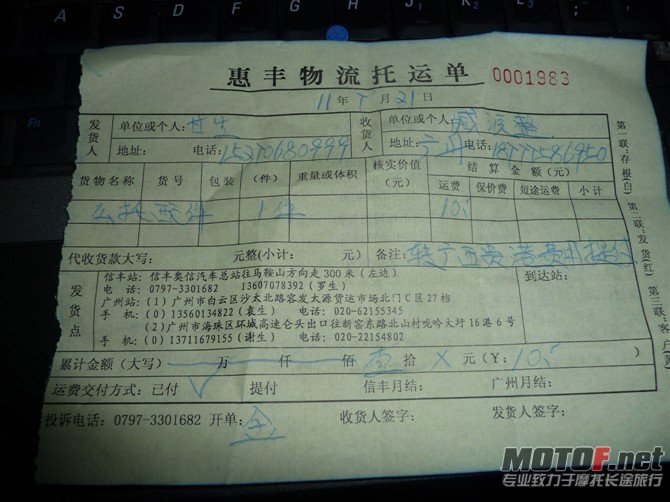 惠丰物流托运单 0001983
11年 7月21日
发货人 单位或个人：甘生 收货人 单位或个人：
地址： 电话：15270680999 地址：广州 电话：
货物名称 货号 包装 （件） 重量或体积 核实价值（元） 结算金额（元）
运费 保价费 短途运费 小计
1件 10.
代收货款大写： 元整（小计： 元） 备注：转广西贵港
发货点
信丰站：信丰奥信汽车总站往马鞍山方向走300米（左边）
电话：0797-3301682 13607078392（罗生）
广州站：（1）广州市白云区沙太北路容发太源货运市场北门C区27档
手机：（0）13560134822（袁生） 电话：020-62155345
（2）广州市海珠区环城高速仑头出口往新窑东路北山村咙吟大圩16港6号
手机：（0）13711679155（谢生） 电话：020-22154802
到达站：
累计金额（大写） 万 仟 佰 壹拾 元（¥： 10. ）
运费交付方式：已付 √ 提付 信丰月结： 广州月结：
投诉电话：0797-3301682 开单：金 收货人签字： 发货人签字：
第一联：存根（白） 第二联：发货（红） 第三联：客户
Fn
MOTOF.net
专业致力于摩托长途旅行